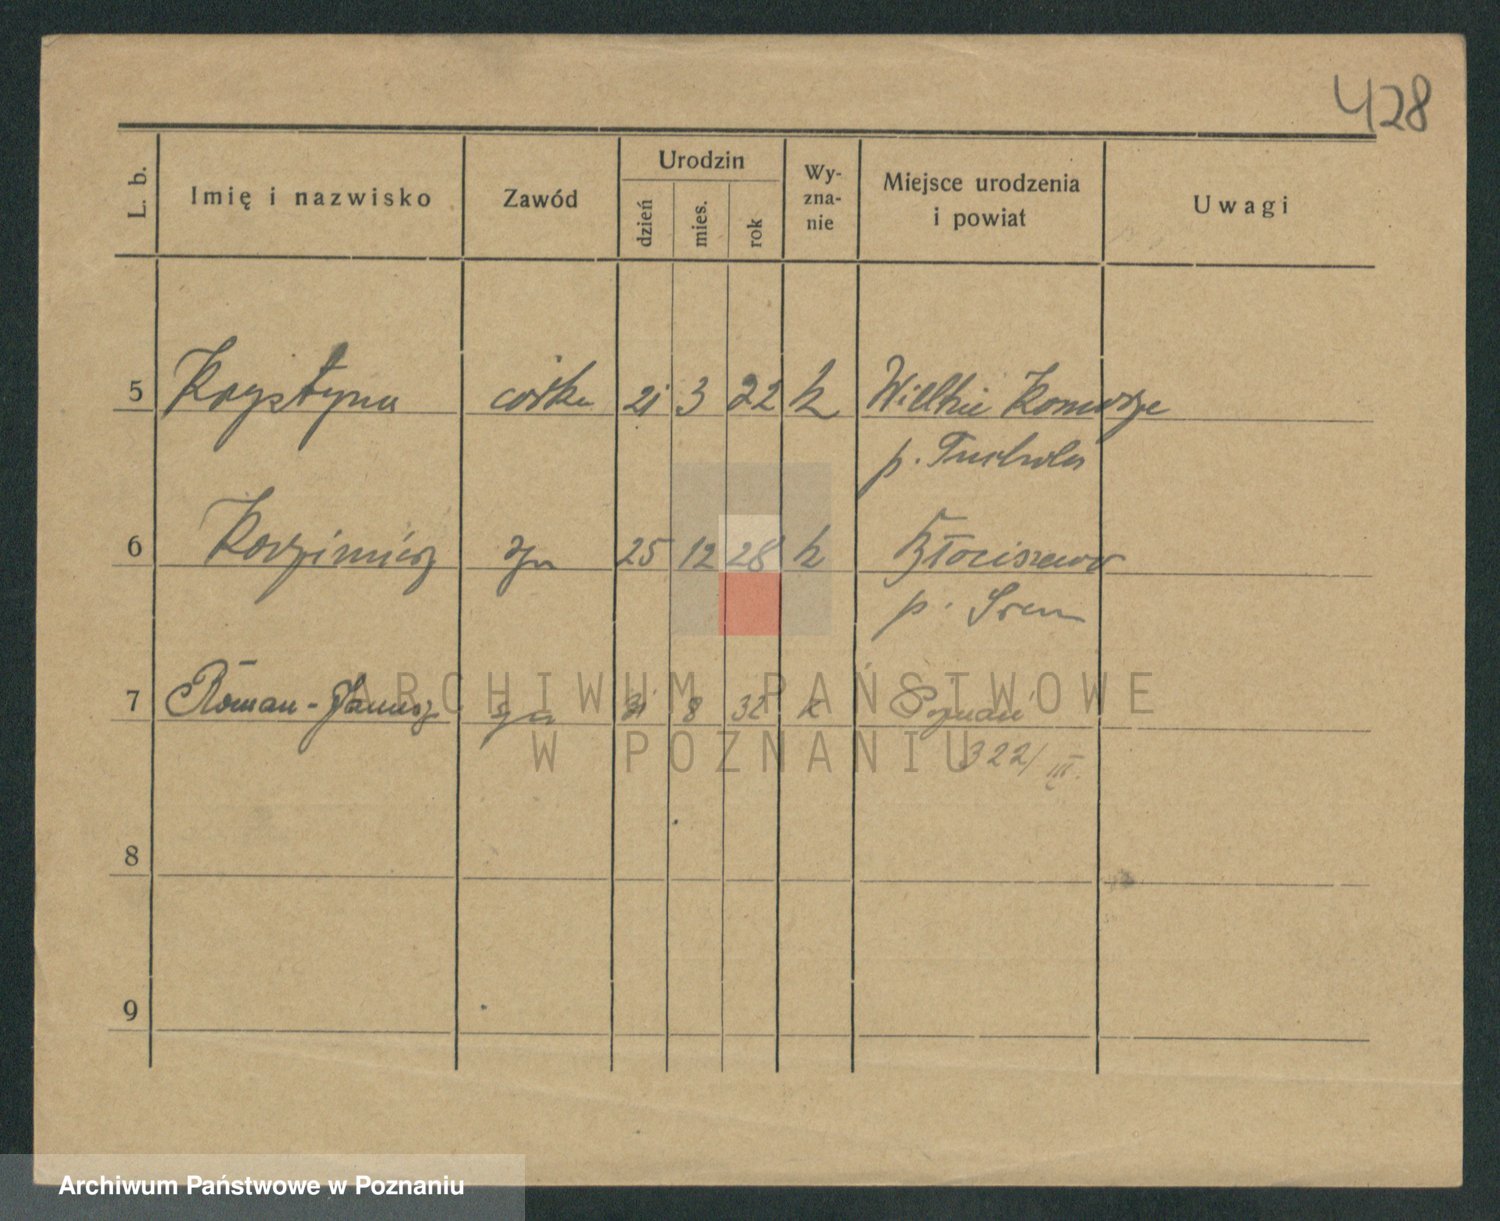 428
L. b. Imię i nazwisko Zawód Urodzin dzień mies. rok Wy-zna-nie Miejsce urodzenia i powiat Uwagi
5 Krystyna córka 21 3 22 k Wielkie Komorze
p. Tuchola
6 Kazimierz syn 25 12 28 k Włościszewo
p. Śrem
7 Roman-Janusz syn 31 8 32 k Poznań
322/III.
8
9
ARCHIWUM PAŃSTWOWE
W POZNANIU
Archiwum Państwowe w Poznaniu